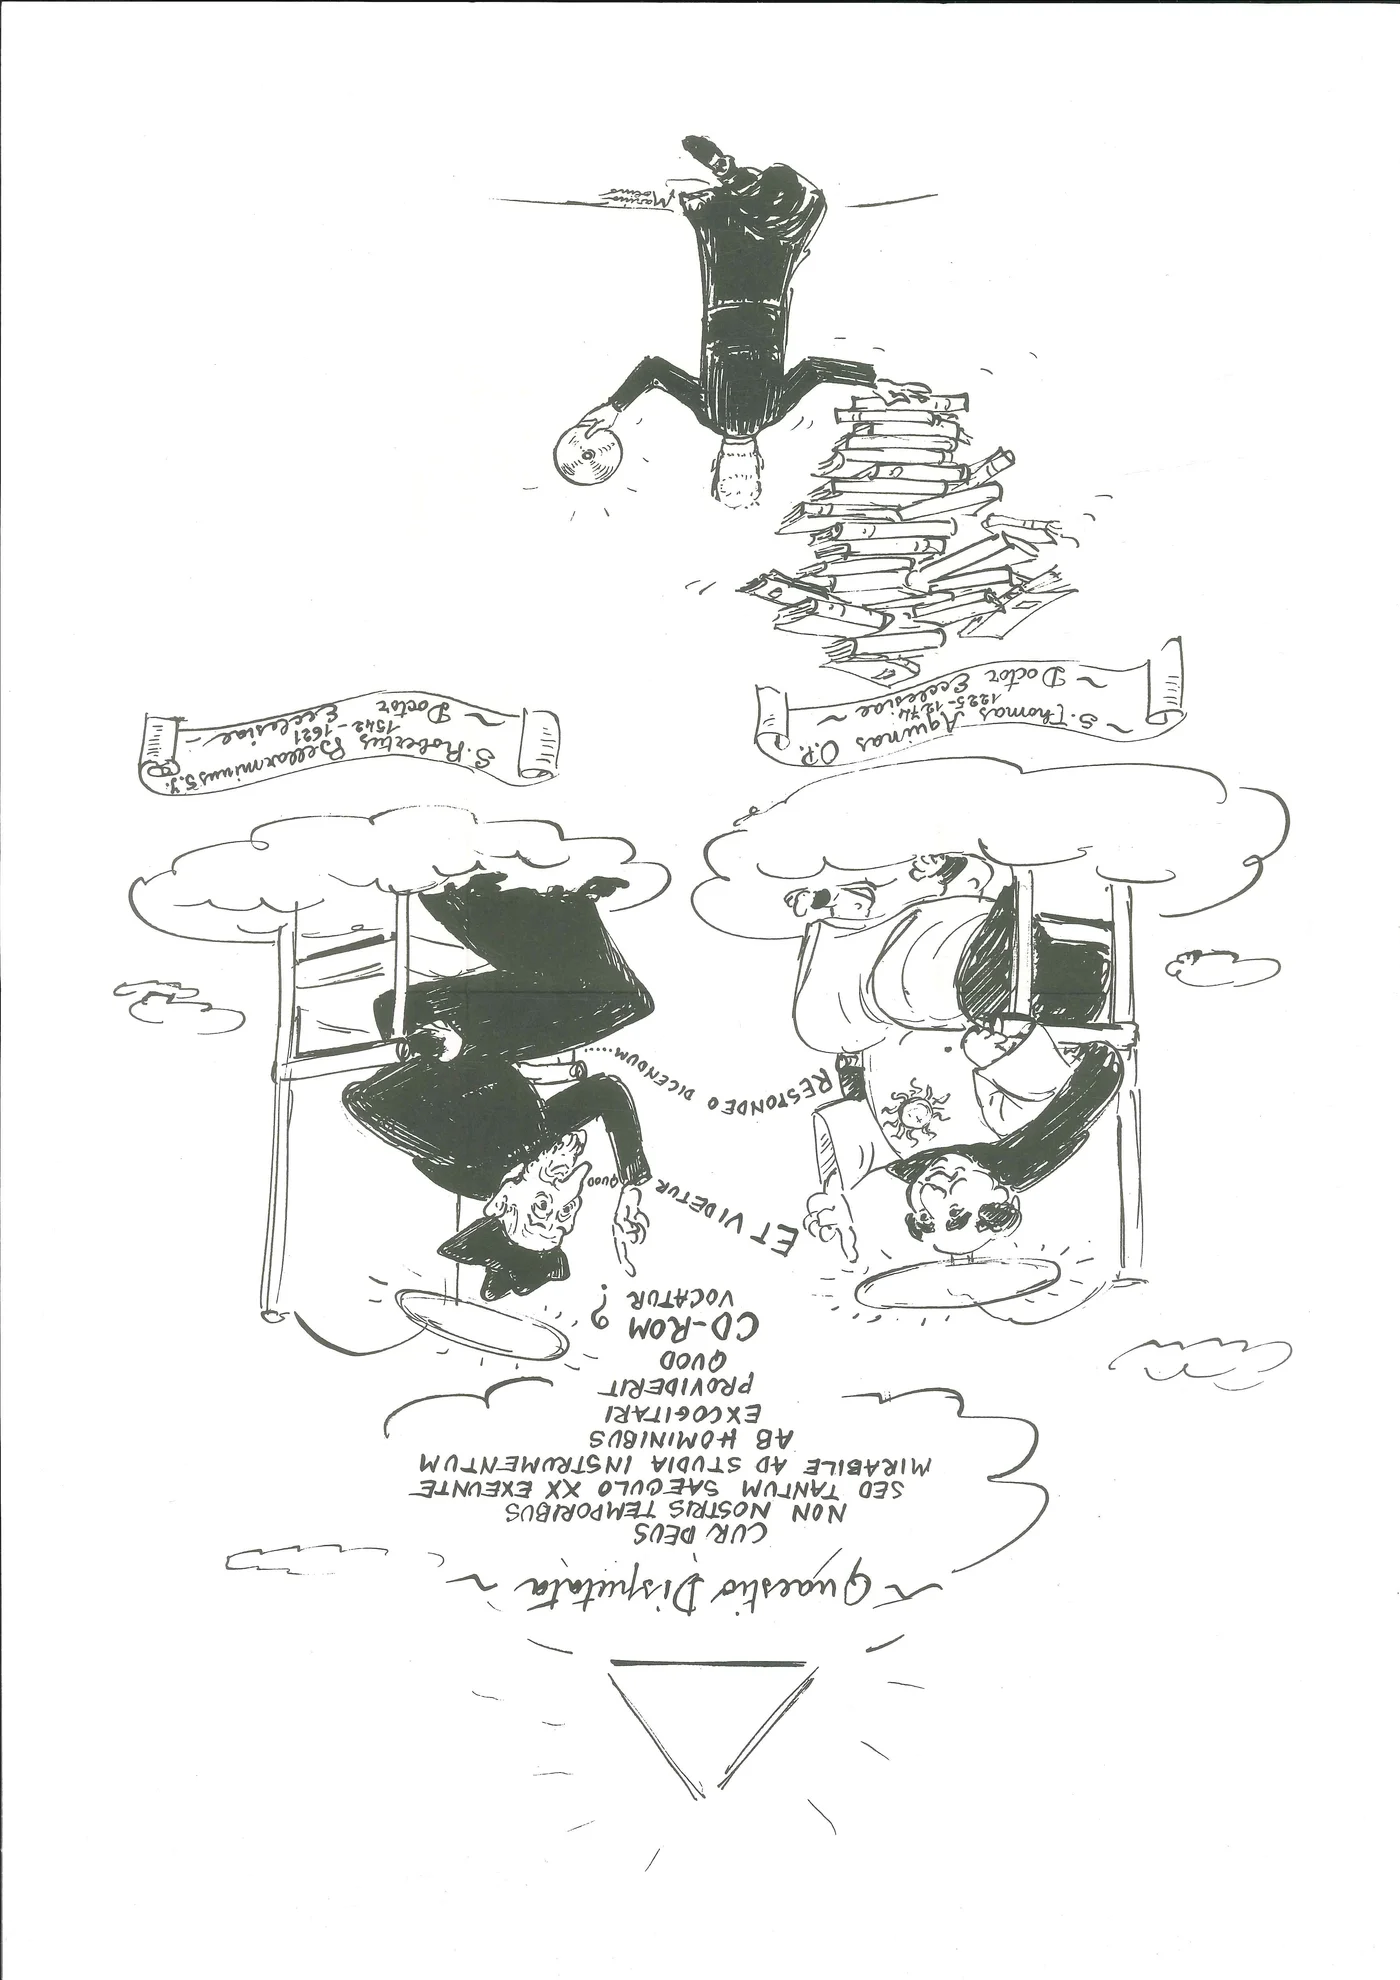 ~ Quaestio Disputata ~
CUR DEUS
NON NOSTRIS TEMPORIBUS
SED TANTUM SAECULO XX EXEUNTE
MIRABILE AD STUDIA INSTRUMENTUM
AB HOMINIBUS
EXCOGITARI
PROVIDERIT
QUOD
CD-ROM
VOCATUR ?
ET VIDETUR QUOD
RESPONDEO DICENDUM.....
~ S. Thomas Aquinas O.P.
1225-1274
~ Doctor Ecclesiae ~
S. Robertus Bellarminus S.J.
1542-1621
~ Doctor Ecclesiae ~
Marino